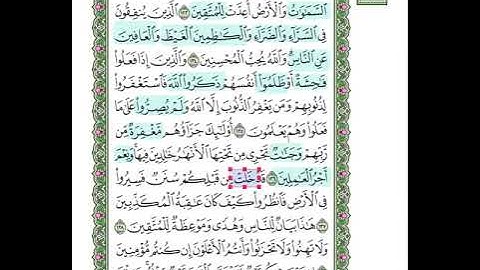 السَّمَٰوَٰتُ وَالْأَرْضُ أُعِدَّتْ لِلْمُتَّقِينَ ١٣٣ الَّذِينَ يُنفِقُونَ
فِي السَّرَّاءِ وَالضَّرَّاءِ وَالْكَاظِمِينَ الْغَيْظَ وَالْعَافِينَ
عَنِ النَّاسِ وَاللَّهُ يُحِبُّ الْمُحْسِنِينَ ١٣٤ وَالَّذِينَ إِذَا فَعَلُوا
فَاحِشَةً أَوْ ظَلَمُوا أَنفُسَهُمْ ذَكَرُوا اللَّهَ فَاسْتَغْفَرُوا
لِذُنُوبِهِمْ وَمَن يَغْفِرُ الذُّنُوبَ إِلَّا اللَّهُ وَلَمْ يُصِرُّوا عَلَىٰ مَا
فَعَلُوا وَهُمْ يَعْلَمُونَ ١٣٥ أُولَٰئِكَ جَزَاؤُهُم مَّغْفِرَةٌ مِّن
رَّبِّهِمْ وَجَنَّاتٌ تَجْرِي مِن تَحْتِهَا الْأَنْهَارُ خَالِدِينَ فِيهَا وَنِعْمَ
أَجْرُ الْعَامِلِينَ ١٣٦ قَدْ خَلَتْ مِن قَبْلِكُمْ سُنَنٌ فَسِيرُوا
فِي الْأَرْضِ فَانظُرُوا كَيْفَ كَانَ عَاقِبَةُ الْمُكَذِّبِينَ
١٣٧ هَٰذَا بَيَانٌ لِّلنَّاسِ وَهُدًى وَمَوْعِظَةٌ لِّلْمُتَّقِينَ ١٣٨
وَلَا تَهِنُوا وَلَا تَحْزَنُوا وَأَنتُمُ الْأَعْلَوْنَ إِن كُنتُم مُّؤْمِنِينَ